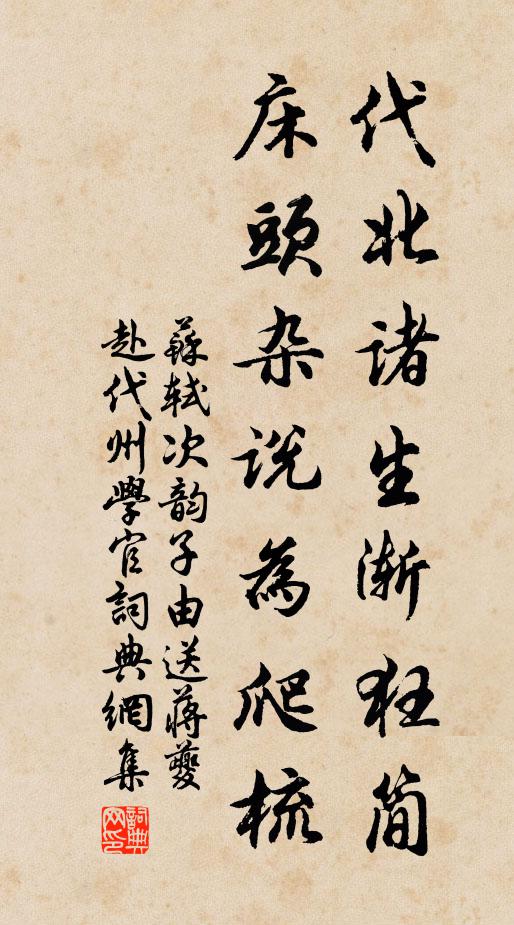 代北诸生渐狂简
床頭杂说為爬梳
蘇轼次韵子由送蒋夔
赴代州學官詞典網集
詞典网印